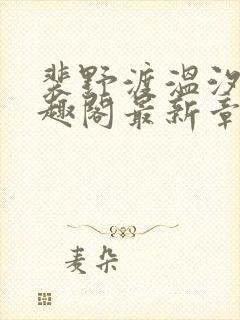 裴野渡温汐
趣阁最新章
麦朵